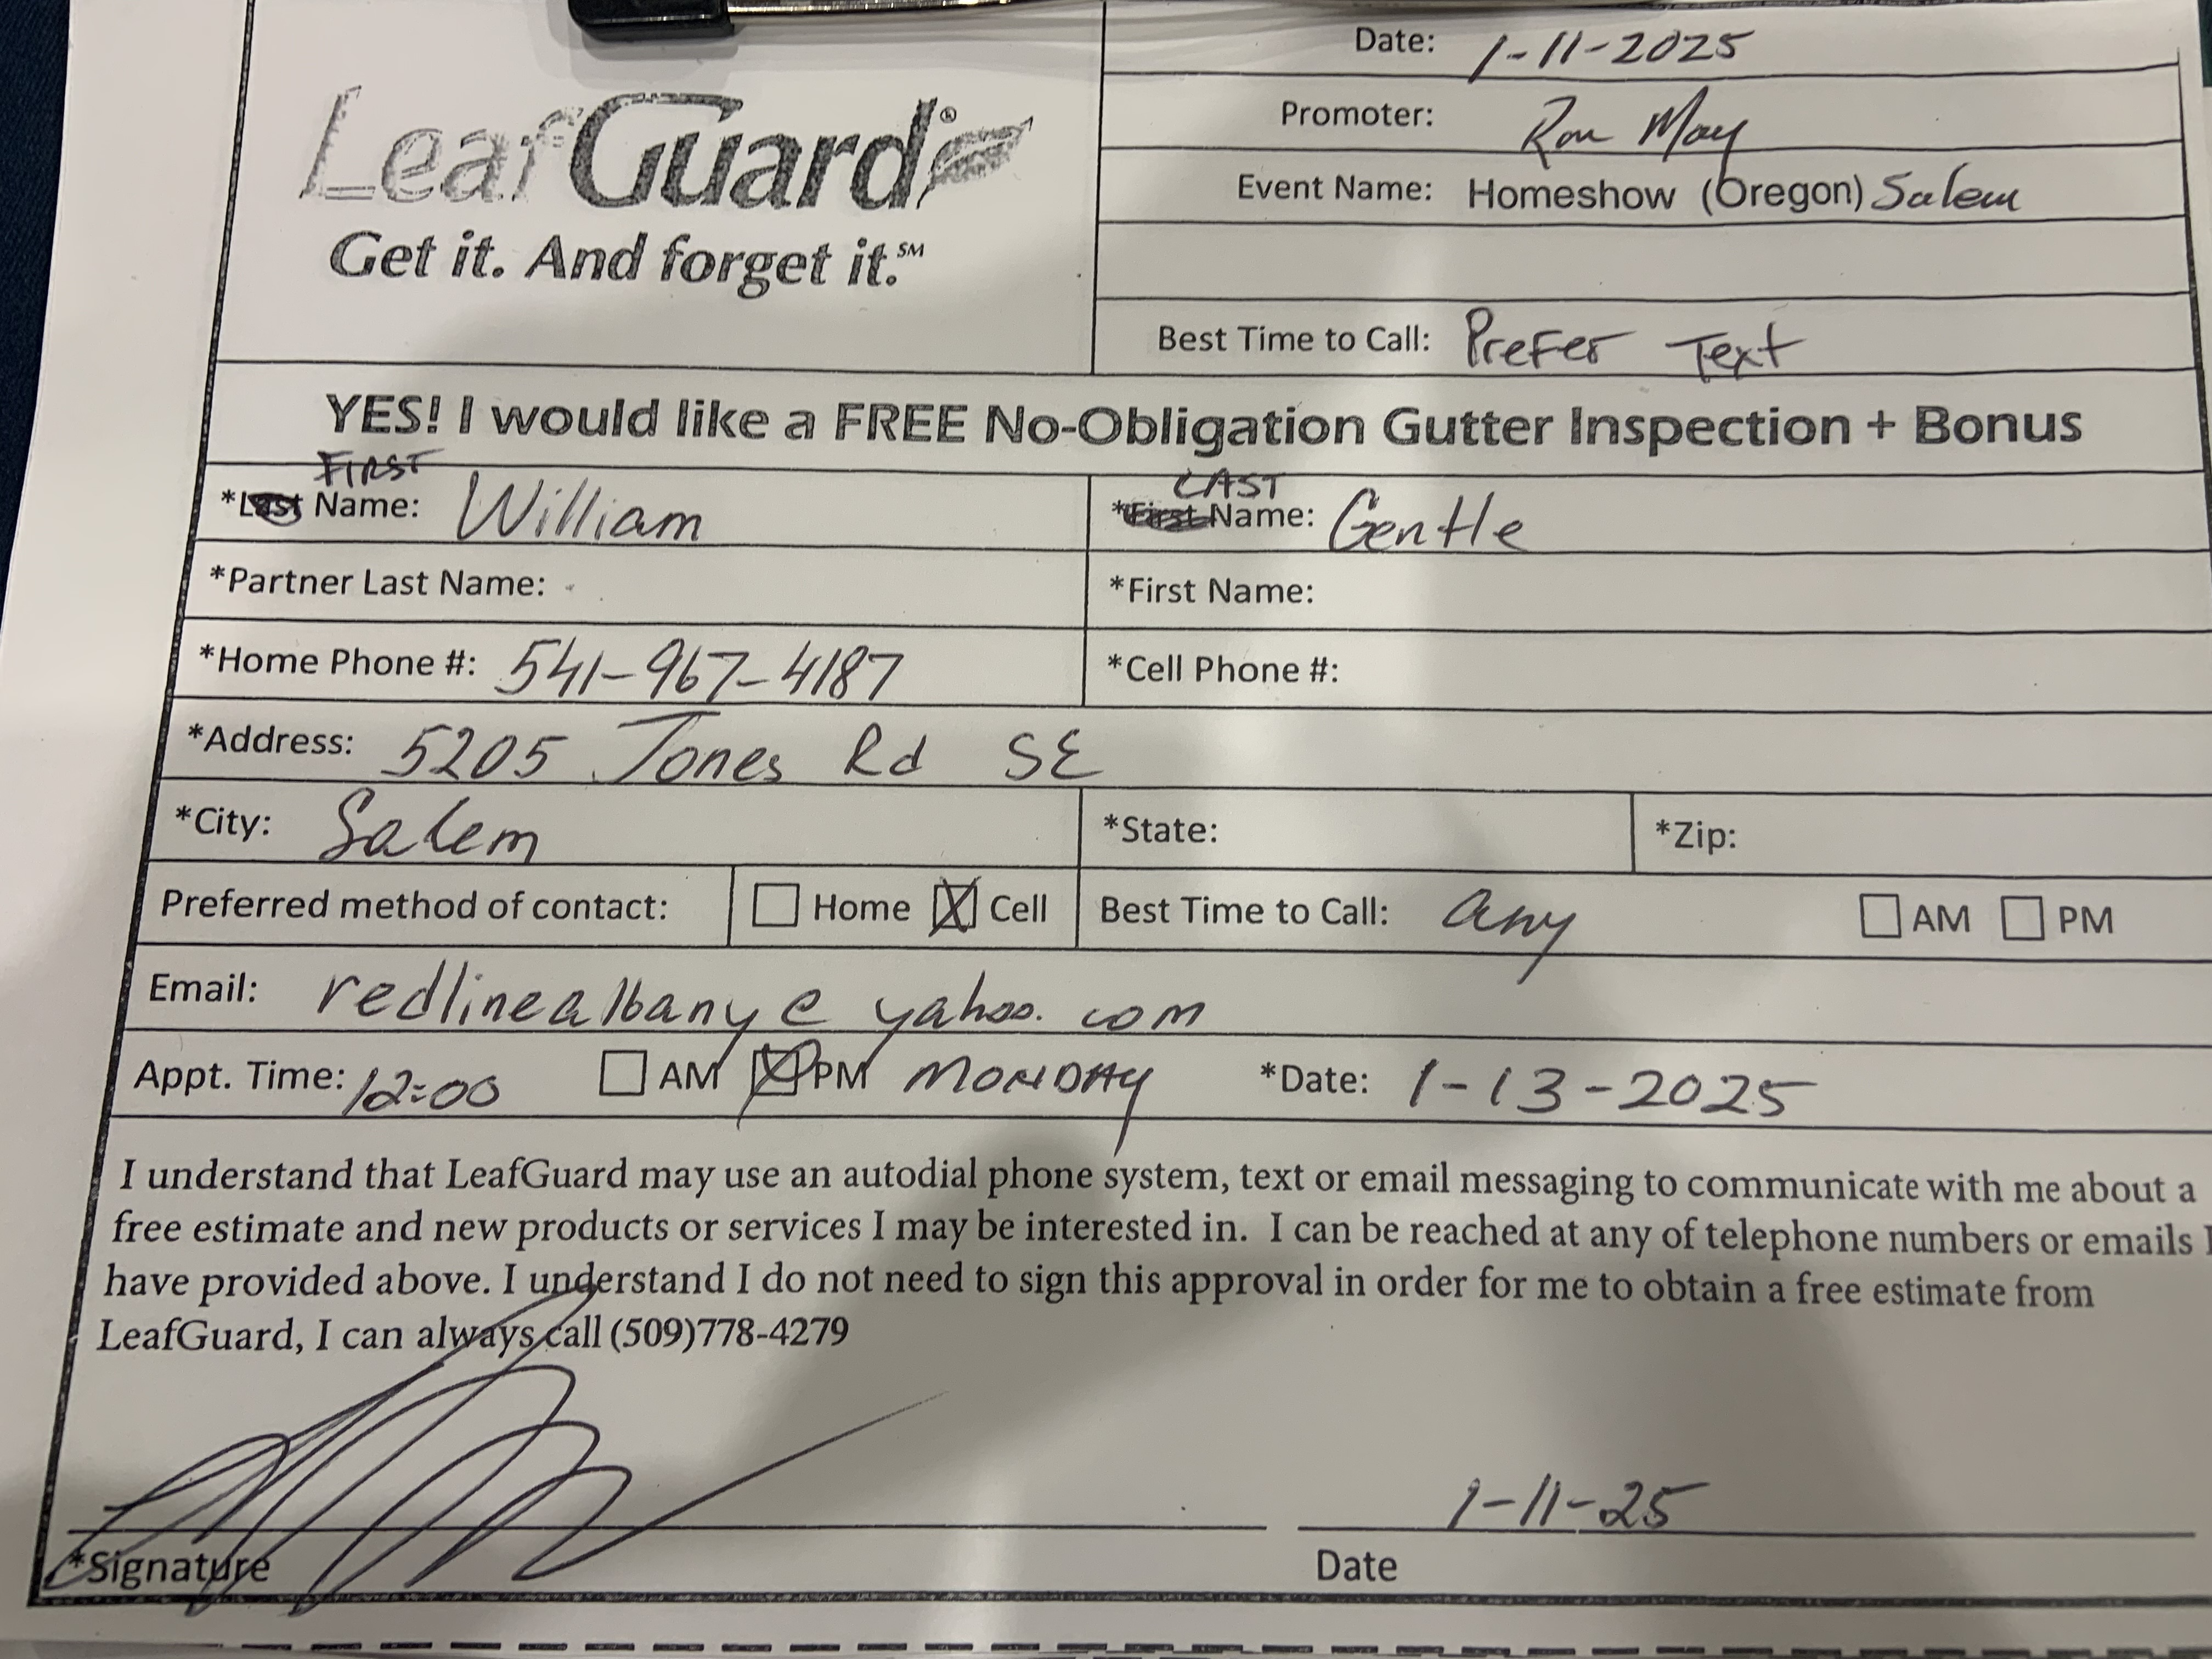 LeafGuard®
Get it. And forget it.℠
Date: 1-11-2025
Promoter: Ron May
Event Name: Homeshow (Oregon) Salem
Best Time to Call: Prefer Text
YES! I would like a FREE No-Obligation Gutter Inspection + Bonus
FIRST LAST
*Last Name: William *First Name: Gentle
*Partner Last Name: *First Name:
*Home Phone #: 541-967-4187 *Cell Phone #:
*Address: 5205 Jones Rd SE
*City: Salem *State: *Zip:
Preferred method of contact: ☐ Home ☒ Cell Best Time to Call: any ☐ AM ☐ PM
Email: redlinealbany@yahoo.com
Appt. Time: 12:00 ☐ AM ☒ PM MONDAY *Date: 1-13-2025
I understand that LeafGuard may use an autodial phone system, text or email messaging to communicate with me about a
free estimate and new products or services I may be interested in. I can be reached at any of telephone numbers or emails I
have provided above. I understand I do not need to sign this approval in order for me to obtain a free estimate from
LeafGuard, I can always call (509)778-4279
1-11-25
*Signature Date